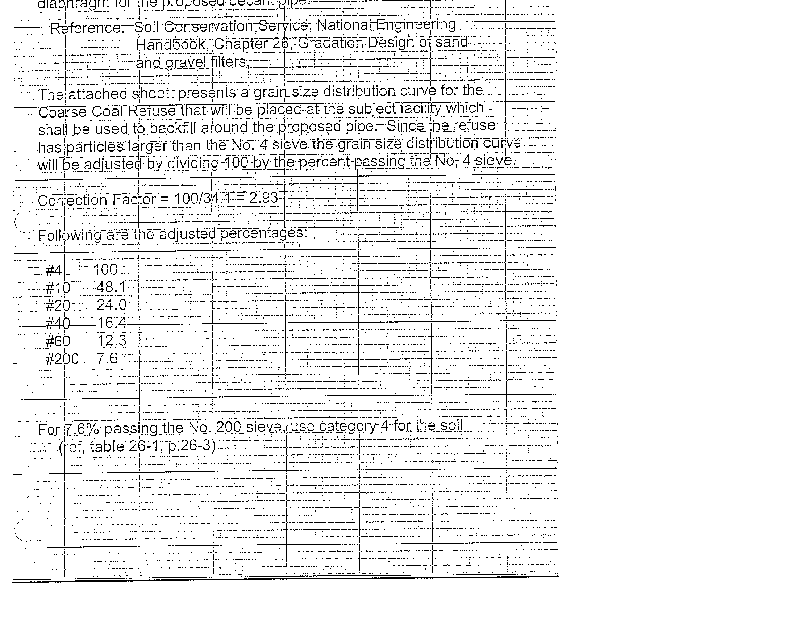 diaphragm for the proposed decant pipe.
Reference: Soil Conservation Service, National Engineering
Handbook, Chapter 26, Gradation Design of sand
and gravel filters.
The attached sheet presents a grain size distribution curve for the
Coarse Coal Refuse that will be placed at the subject facility which
shall be used to backfill around the proposed pipe. Since the refuse
has particles larger than the No. 4 sieve the grain size distribution curve
will be adjusted by dividing 100 by the percent passing the No. 4 sieve.
Correction Factor = 100/34.1 = 2.93
Following are the adjusted percentages:
#4 100
#10 48.1
#20 24.0
#40 16.4
#60 12.3
#200 7.6
For 7.6% passing the No. 200 sieve, use category 4 for the soil
(ref. table 26-1, p.26-3)